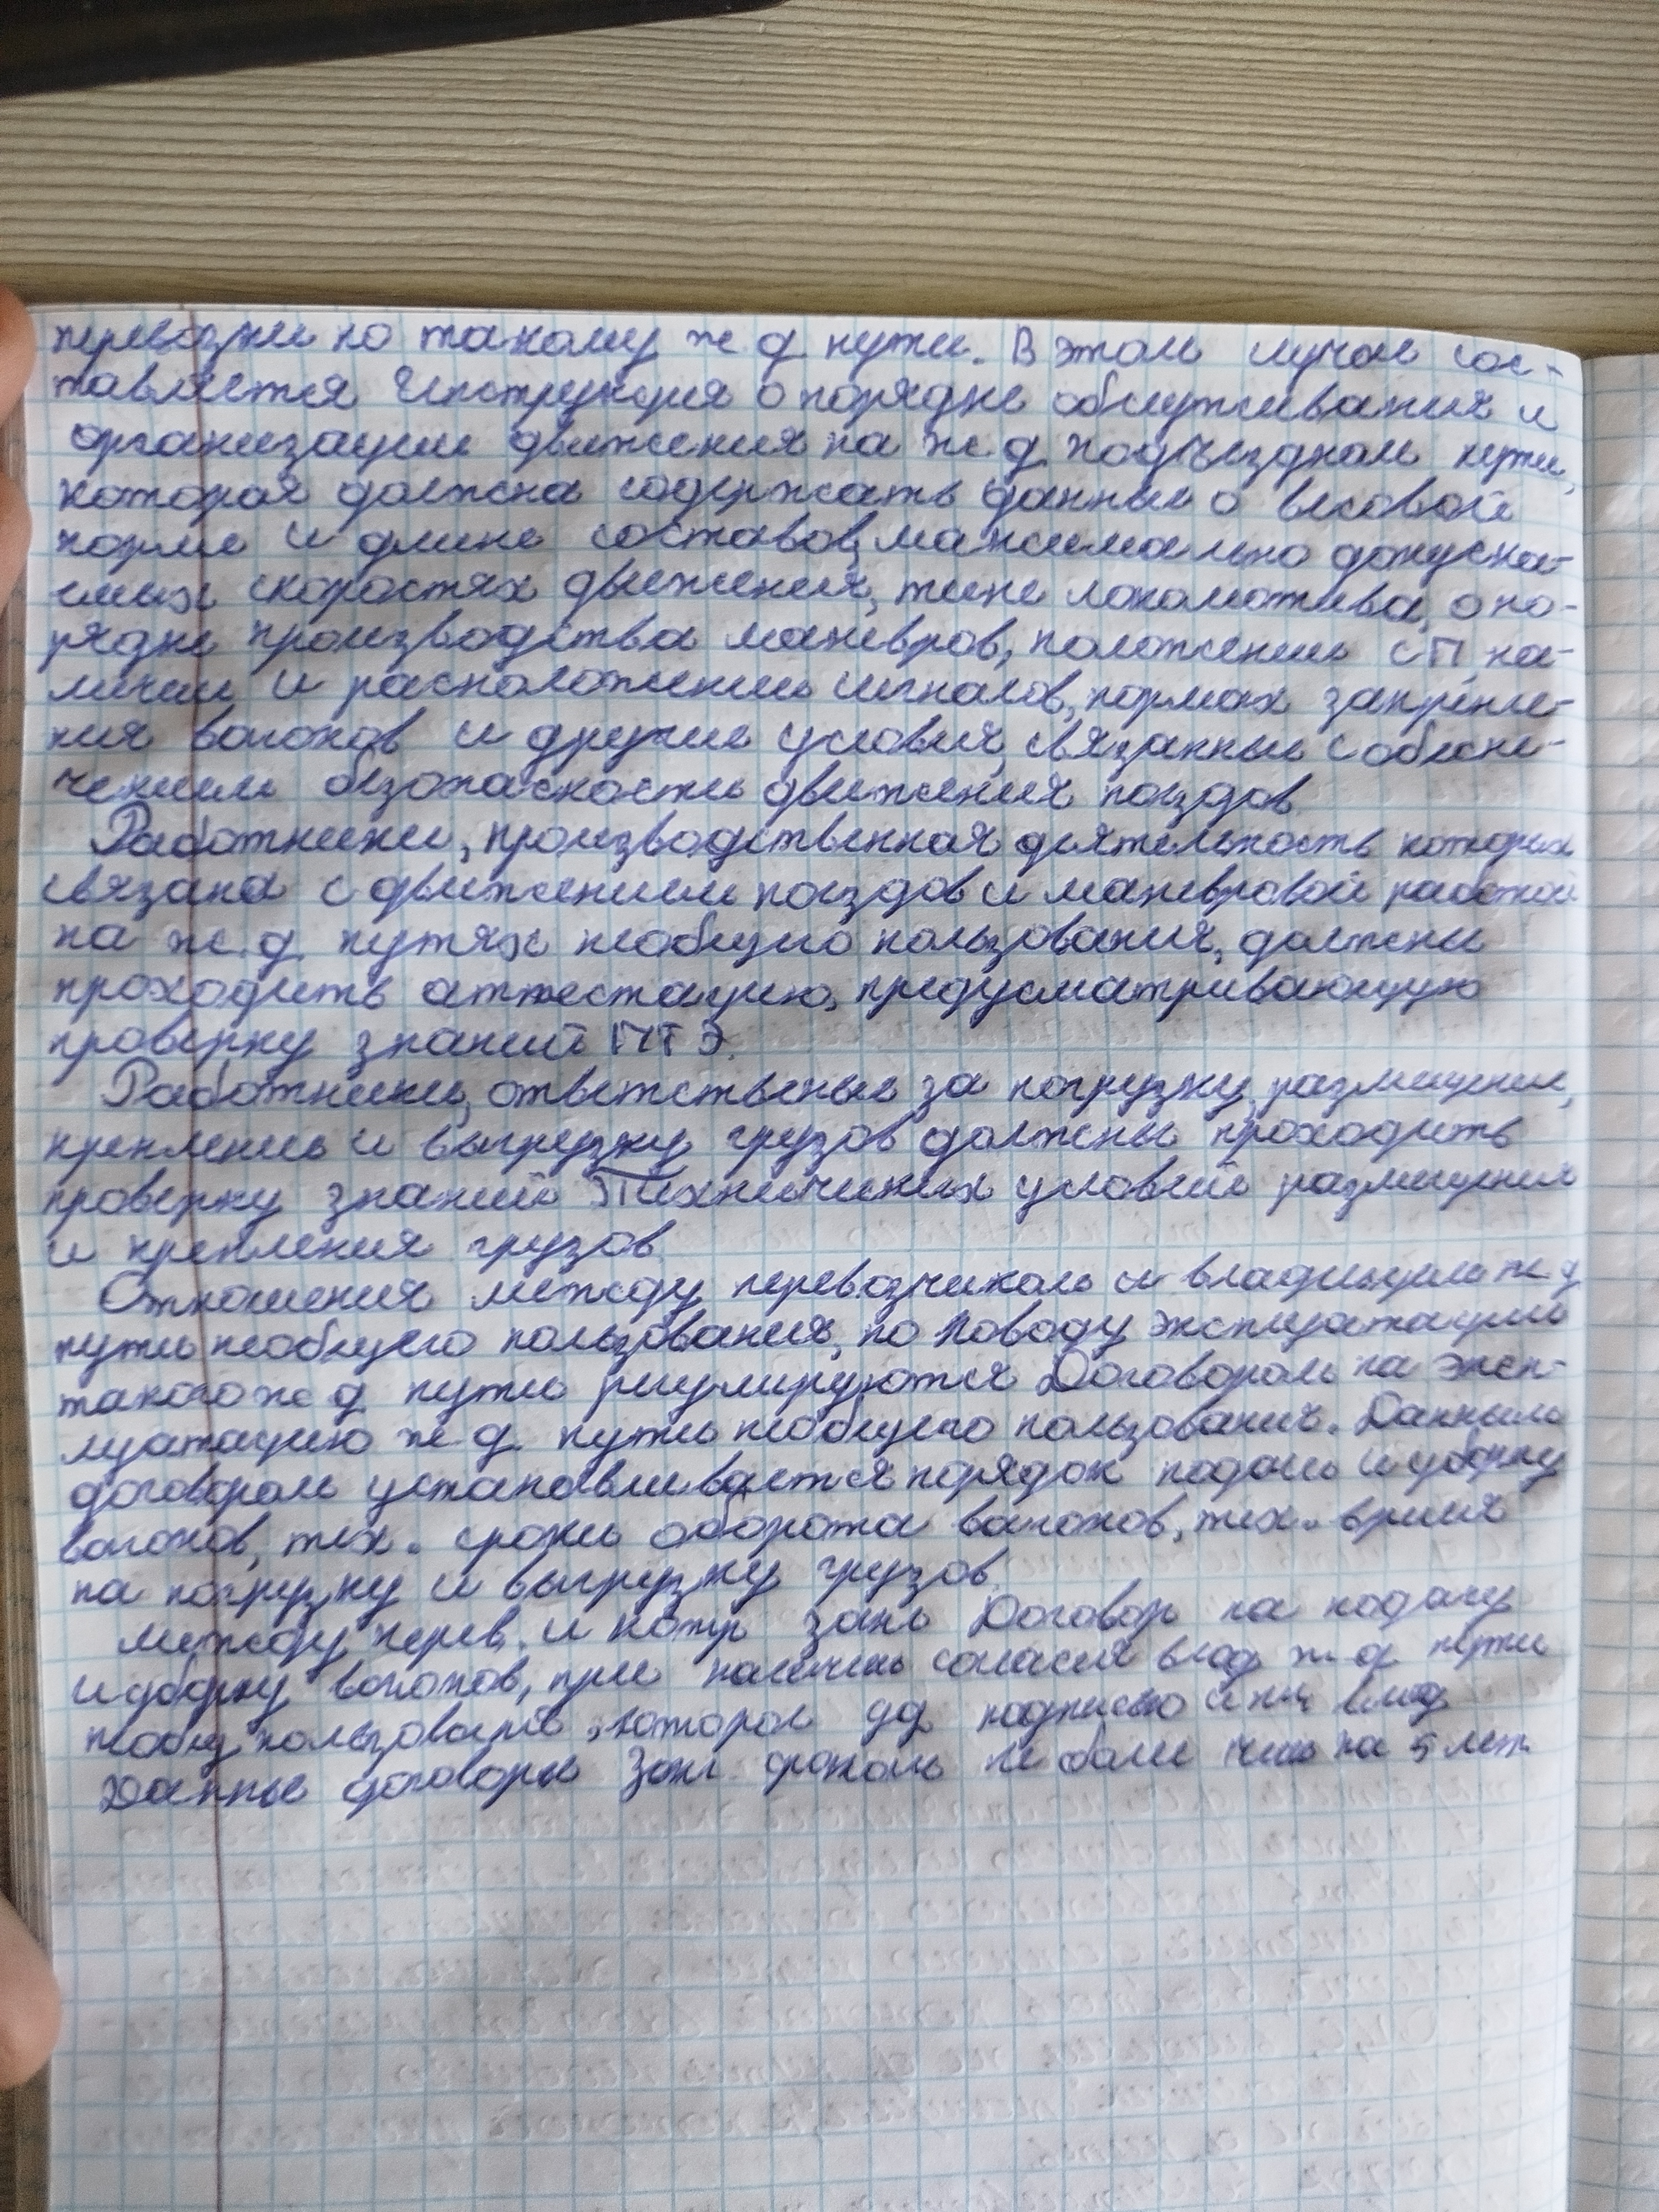 перевозки по такому ж д пути. В этом случае сос-
тавляется Инструкция о порядке обслуживания и
организации движения на ж.д подъездном пути,
которая должна содержать данные о весовой
норме и длине составов, максимально допуска-
емых скоростях движения, типе локомотива, о по-
рядке производства маневров, положении СП, на-
личии и расположении сигналов, нормах закрепле-
ния вагонов и другие условия, связанные с обеспе-
чением безопасности движения поездов.
Работники, производственная деятельность которых
связана с движением поездов и маневровой работой
на ж.д. путях необщего пользования, должны
проходить аттестацию, предусматривающую
проверку знаний ПТЭ.
Работники, ответственые за погрузку, размещение,
крепление и выгрузку грузов должны проходить
проверку знаний Технических условий размещения
и крепления грузов.
Отношения между перевозчиком и владельцем ж д
пути необщего пользования, по поводу эксплуатации
такого ж д пути регулируются Договором на эксп-
луатацию ж д пути необщего пользования. Данным
договором устанавливается порядок подачи и уборки
вагонов, тех. сроки оборота вагонов, тех. время
на погрузку и выгрузку грузов.
между перев. и контр закл Договор на подачу
и уборку вагонов, при наличии согласия влад ж д пути
необщ пользования, которое подписью влад
Данные договоры закл сроком не более чем на 5 лет.